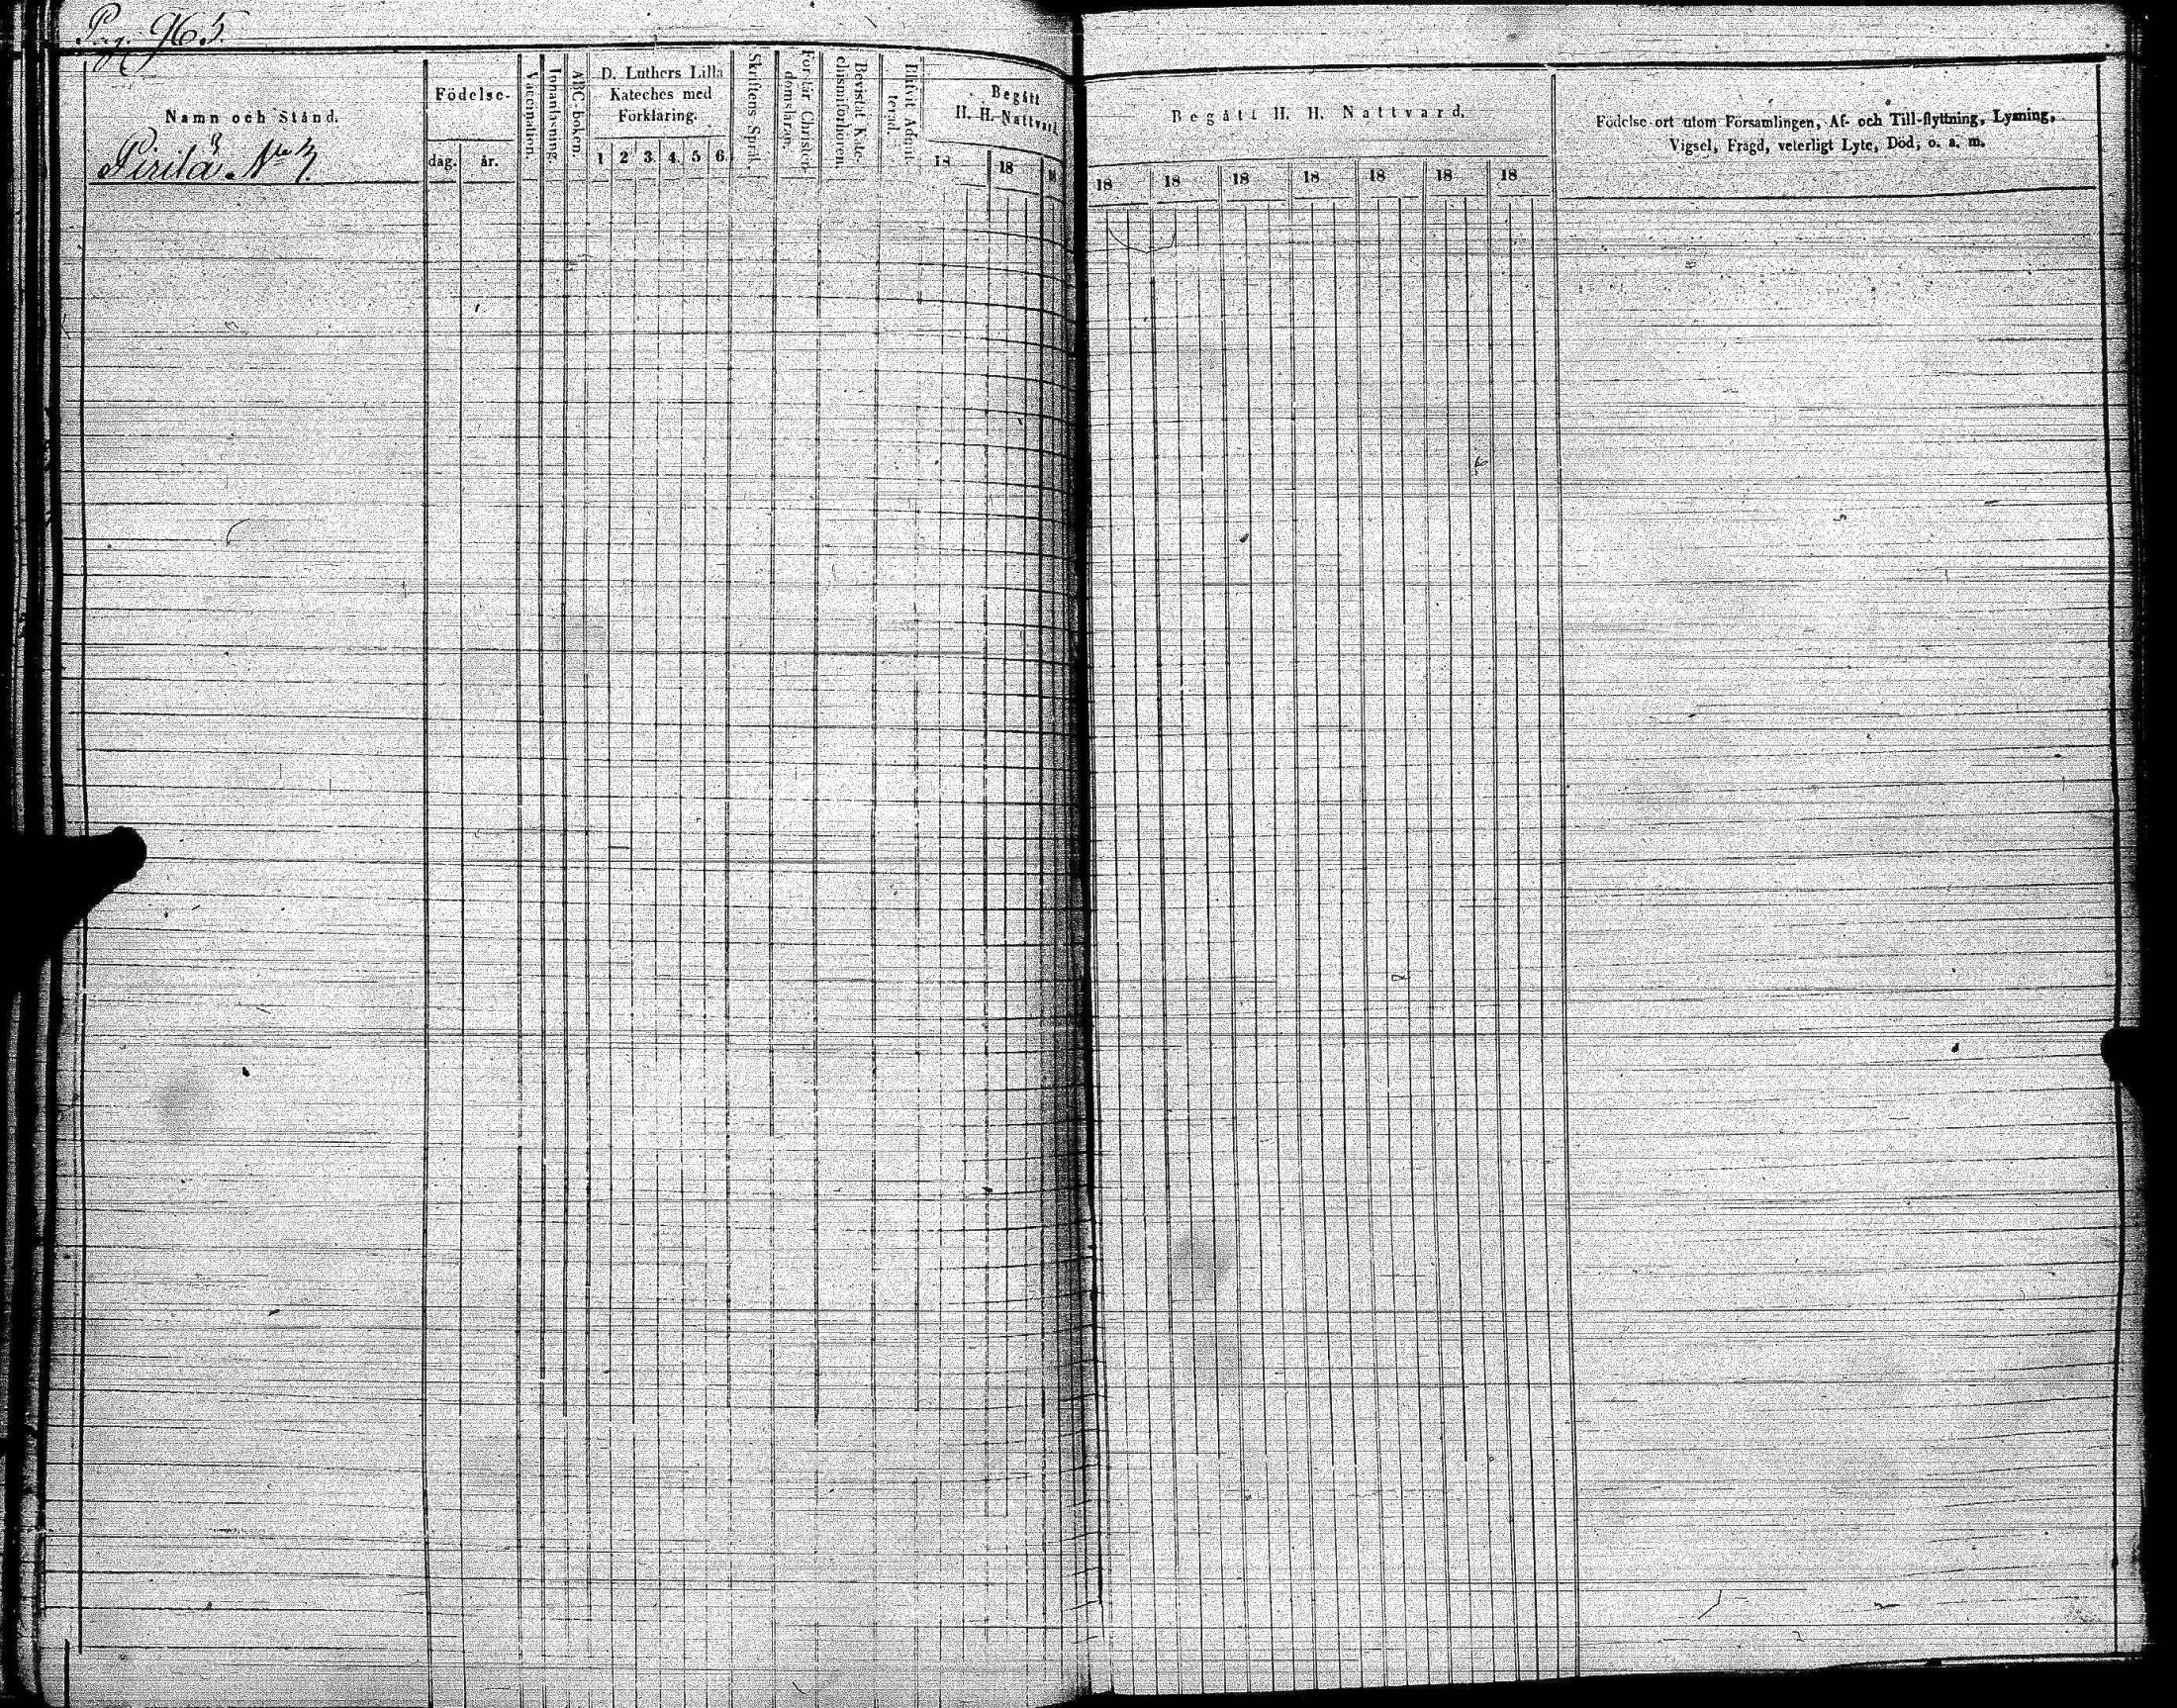 Pag. 965.
Namn och Stånd.
Pirilä No 3.
Födelse-
dag. år.
Vaccination.
Innanläsning.
ABC-boken.
D. Luthers Lilla
Kateches med
Förklaring.
1 2 3. 4. 5 6.
Skriftens Språk.
Förstår Christen-
domsläran.
Bevistat Kate-
chismiförhören.
Blifvit Admit-
terad.
Begått
H. H. Nattvard.
18 18 18
Begått H. H. Nattvard.
18 18 18 18 18 18 18
Födelse-ort utom Församlingen, Af- och Till-flyttning, Lysning,
Vigsel, Frägd, veterligt Lyte, Död, o. a. m.